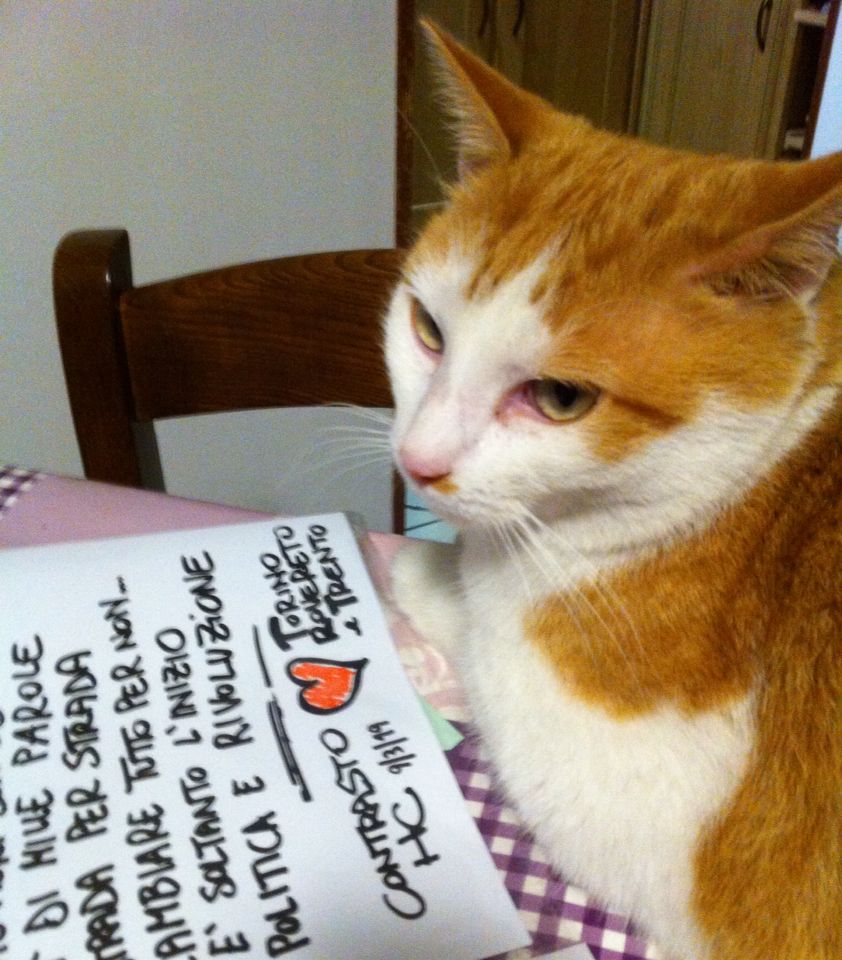 DI MILLE PAROLE
TRADA PER STRADA
CAMBIARE TUTTO PER NON...
È SOLTANTO L'INIZIO
POLITICA E RIVOLUZIONE
CONTRASTO
HC 9/3/19
TORINO
ROVERETO
& TRENTO